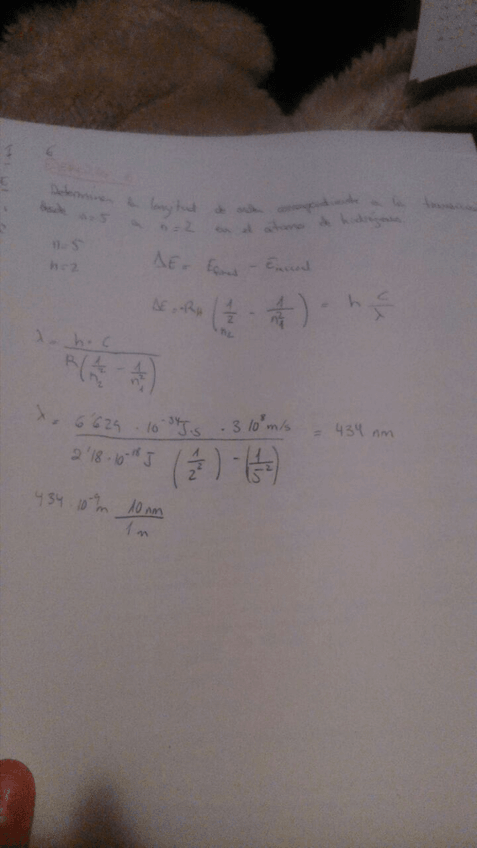 6
Determinen la longitud de onda correspondiente a la
desde n=5 a n=2 en el átomo de hidrógeno
n=5
n=2
ΔE = Efinal - Einicial
ΔE = -RH (1/n₂² - 1/n₁²) = h c/λ
λ = h · c / R(1/n₂² - 1/n₁²)
λ = 6'624 · 10⁻³⁴ J·s · 3 10⁸ m/s / 2'18·10⁻¹⁸ J (1/2²) - (1/5²) = 434 nm
434 · 10⁻⁹ m 10 nm / 1 m